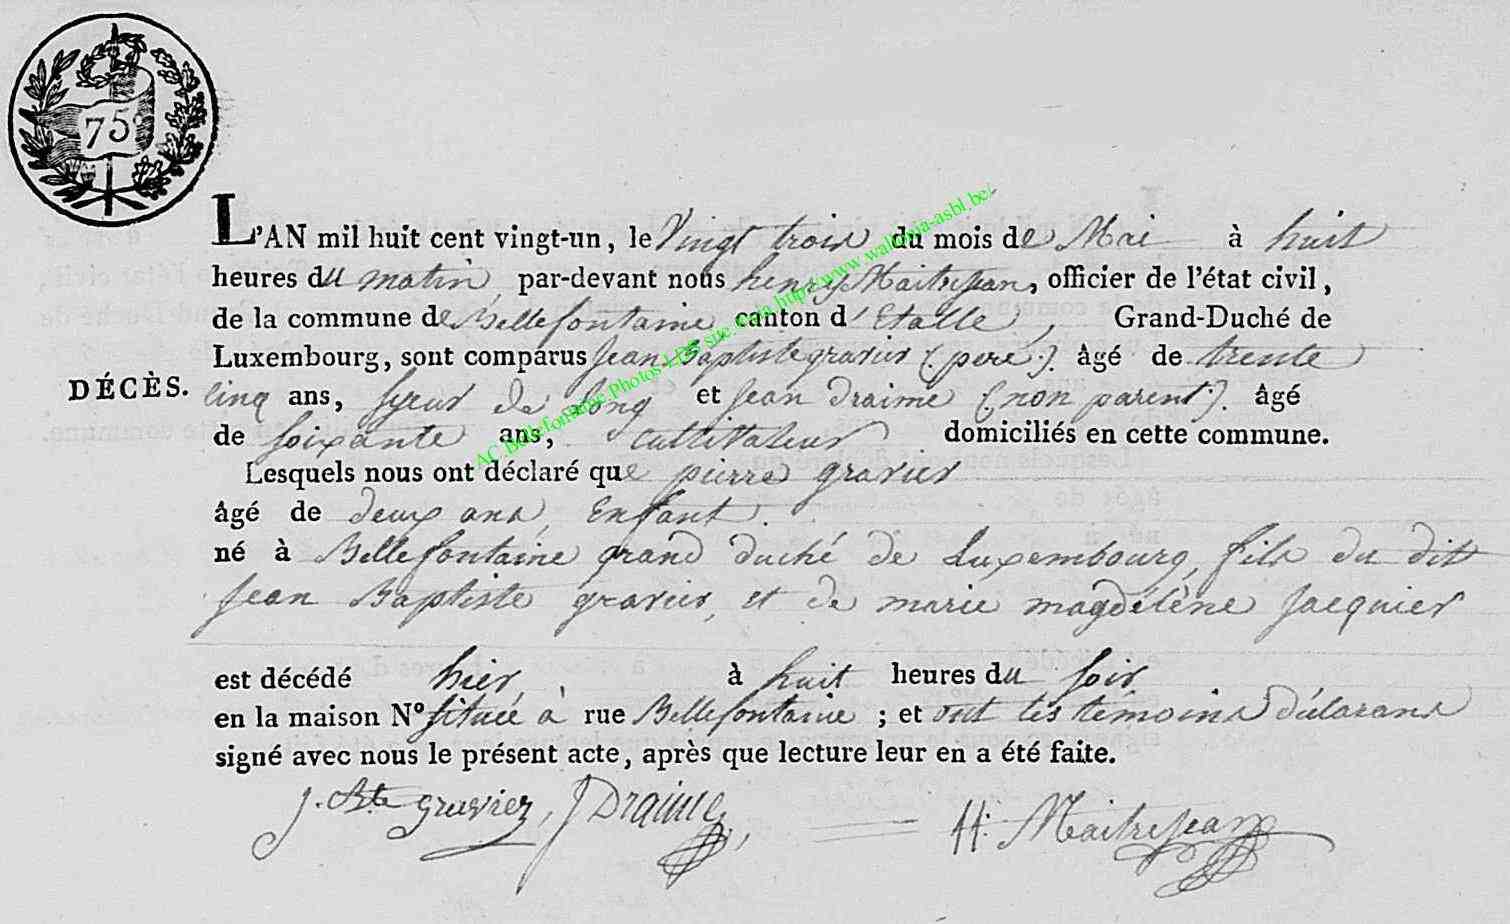 75c
L'AN mil huit cent vingt-un, le Vingt trois du mois de Mai à huit
heures du matin, par-devant nous henry Maitrejean, officier de l'état civil,
de la commune de Bellefontaine canton d'Etalle, Grand-Duché de
Luxembourg, sont comparus jean Baptiste gravier (père). âgé de trente
DÉCÈS.
cinq ans, syeur de long et jean draime (non parent). âgé
de soixante ans, cultivateur domiciliés en cette commune.
Lesquels nous ont déclaré que pierre gravier
âgé de deux ans, Enfant.
né à Bellefontaine grand duché de Luxembourg, fils du dit
jean Baptiste gravier, et de marie magdélène jacquier
est décédé hier, à huit heures du soir
en la maison N° située à rue Bellefontaine ; et ont les temoins délarans
signé avec nous le présent acte, après que lecture leur en a été faite.
j. Bte gravier, J Draime,
H: Maitrejean
AC.Bellefontaine.Photos-LDS site.wa.la.http://www.wallonia-asbl.be/